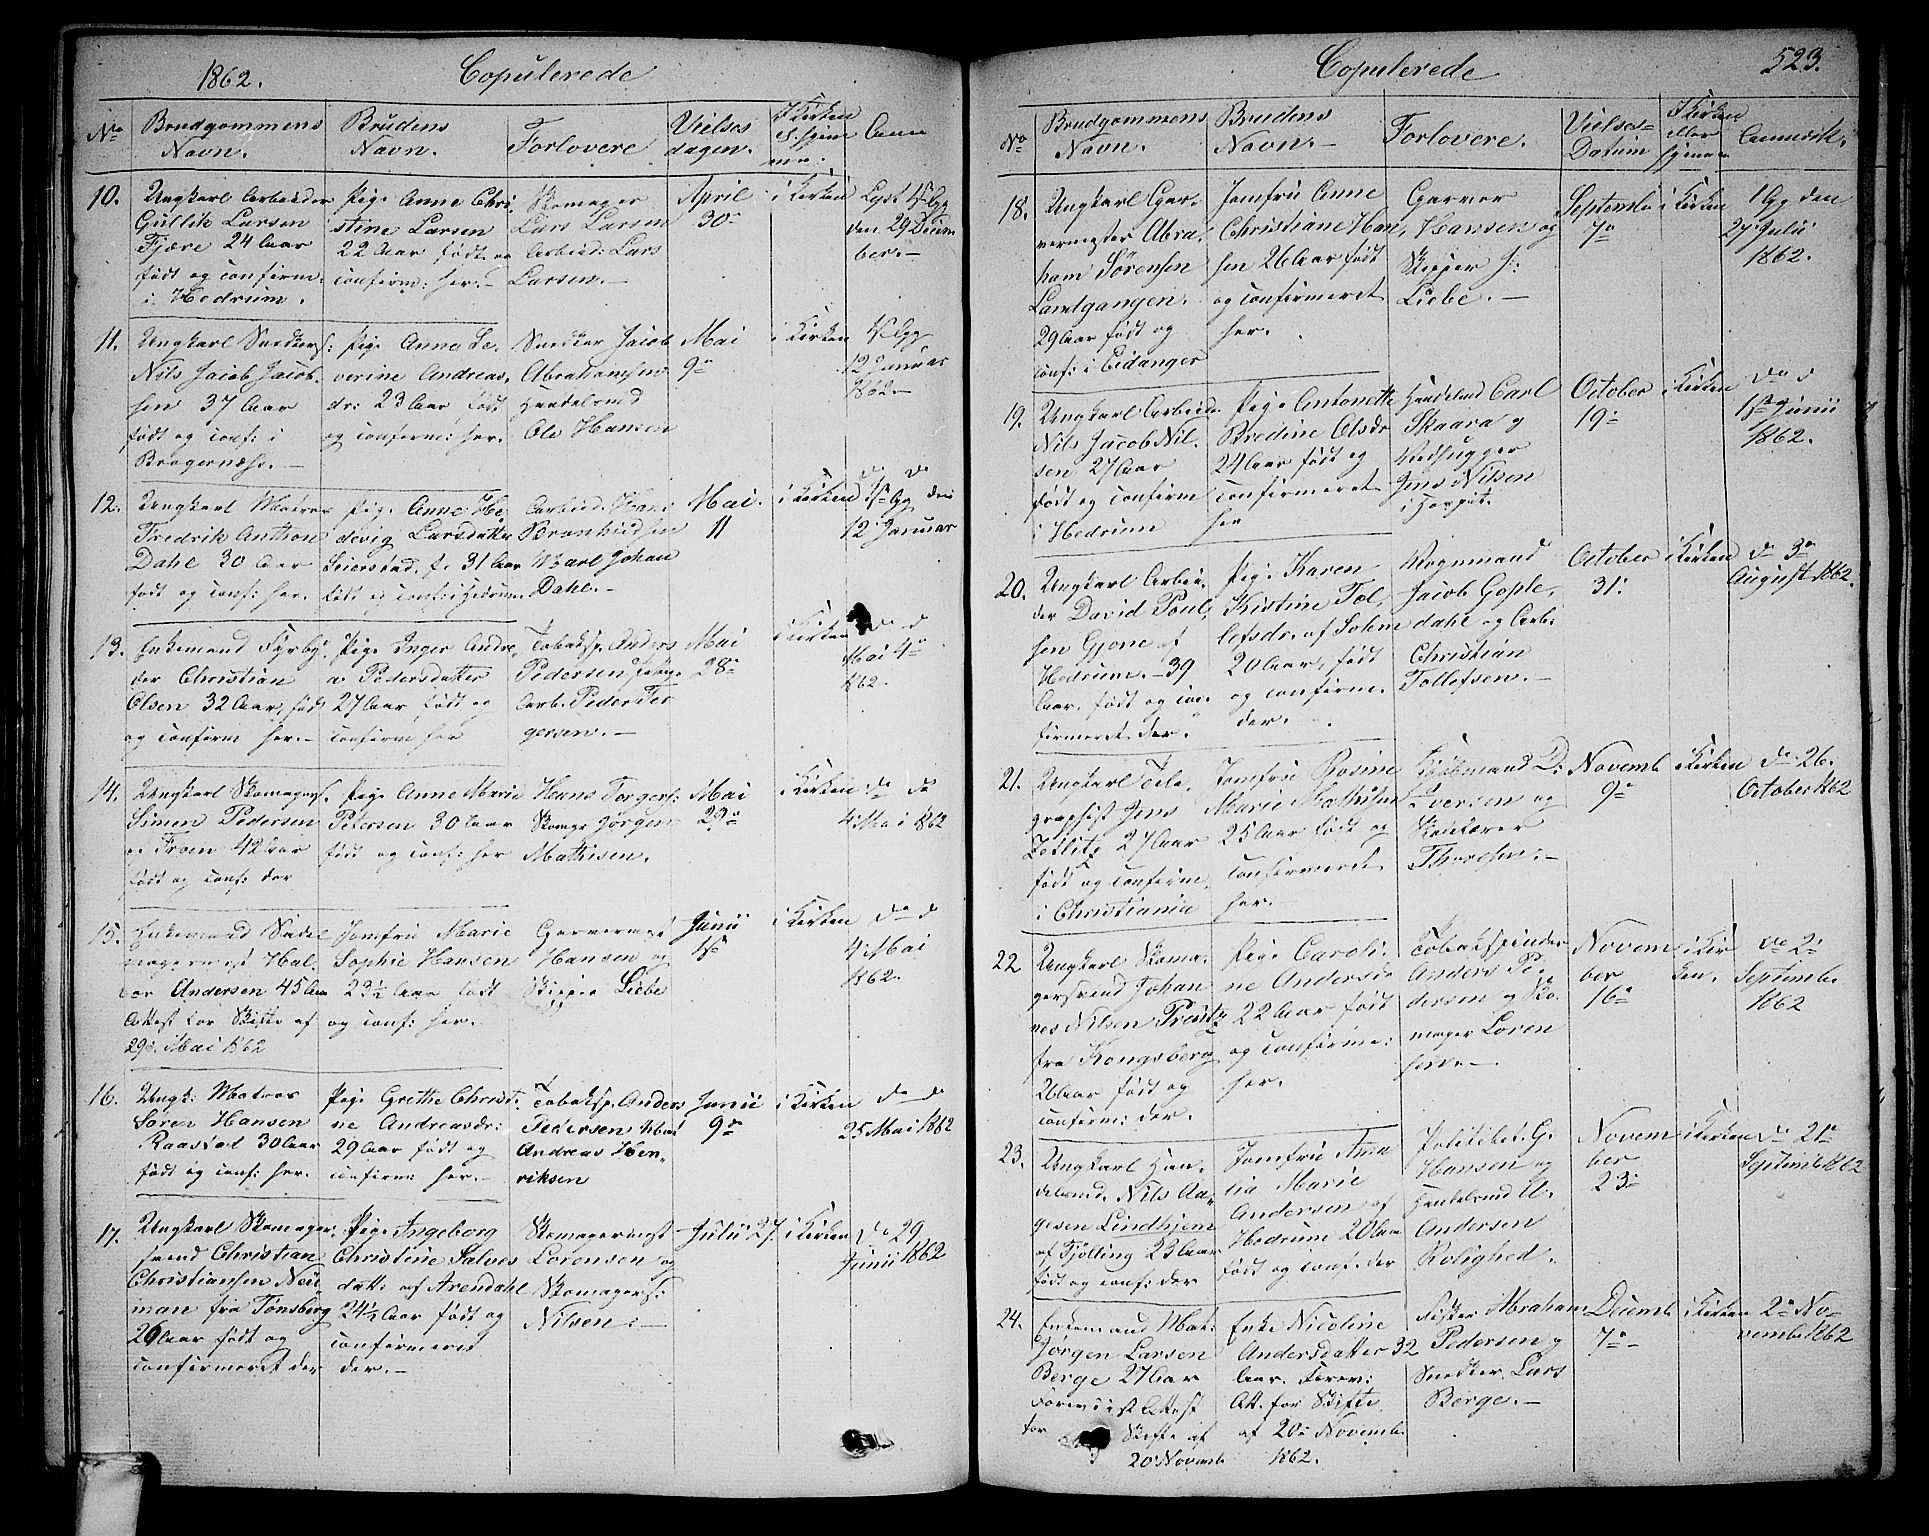 1862. Copulerede
No Brudgommens Navn. Brudens Navn. Forlovere Vielses dagen. I Kirken Anm
10. Ungkarl Arbeider Gullik Larsen Fjære 24 Aar født og confirm: i Hedrum.
Pige Anne Christine Larsen 22 Aar født og confirm: her.-
Skomager Lars Larsen Arbeid: Lars Larsen.-
April 30-
i Kirken
den 29 Decem ber.-
11. Ungkarl Snedkers: Nils Jacob Jacobsen 37 Aar født og conf: i Bragernæs.-
Pige Anne Severine Andreasdr: 23 Aar født og confirme: her.
Snedker Jacob Abrahamsen Handelsmd Ole Hansen
Mai 9-
i Kirken
12 Januar 1862.-
12. Ungkarl Matros Fredrik Anthon Dahl 30 Aar født og conf: her.
Pige Anne Hedevig Larsdatter Seierstad 31 Aar født og conf: i Hedrum
Arbeid. Hans Johan Dahl.-
Mai. 11
i Kirken
do do den 12 Januar
13. Enkemand Fyrbøder Christian Olsen 32 Aar, født og confirm her.-
Pige Inger Andrea Pedersdatter 27 Aar født og confirm her
Tobaksp. Anders Pedersen Arb. Peder Tergersen.-
Mai 28-
i Kirken
do d Mai 4- 1862.
14. Ungkarl Skomagers. Simen Pedersen 42 Aar født og conf: der
Pige Anne Marie Petersen 30 Aar født og conf: her
Hans Torgers: Skomgr Jørgen Mathisen.
Mai 29-
i Kirken
do do 4 Mai 1862
15. Enkemand Sadelmagermest Halvor Andersen 45 Aar Attest for Skifte af 29. Mai 1862
Jomfru Marie Sophie Hansen 23½ Aar født og conf: her.
Garvermest Hansen og Skipper Liebe
Junii
i Kirken
do d 4 Mai 1862.
16. Ungk: Matros Søren Hansen Raastad 30 Aar født og conf: her.
Pige Grethe Christine Andreasdr: 29 Aar født og confirm: her.-
Tobaksp. Anders Pedersen Andreas Henriksen
Junii 9-
i Kirken
do d 25 Mai 1862
17. Ungkarl Skomagersvend Christian Christiansen Neuman fra Tønsberg 26 Aar født og confirmeret der
Pige Ingeborg Christine Salvesdatt: af Arendahl 24½ Aar født og confirmeret der.-
Skomagermest Lorensen og Skomagers: Nilsen:-
Julii 27.
i Kirken
do 29 Junii 1862
Copulerede 523.
No Brudgommens Navn. Brudens Navn.- Forlovere. Vielses- Datum I Kirken eller Anmærk.
18. Ungkarl Garvermester Abraham Sørensen Landgangen. 29 Aar født og conf: i Eidanger
Jomfru Anne Christiane Hansen 26 Aar født og confirmeret her.
Garver Hansen og Skipper Liebe.-
Septembr 7-
i Kirken
1 Gg den 27 Julii 1862.
19. Ungkarl Arbeider Nils Jacob Nilsen 27 Aar født og confirm i Hedrum
Pige Antonette Bredine Olsdr 24 Aar født og confirmeret her
Handelsmd Carl Skaara og Vedhugger Jens Nilsen
October 19-
i Kirken
do d Junii 1862.
20. Ungkarl Arbeider David Poulsen Gjone af Hedrum.- 39 Aar. født og confirmeret der.
Pige Karen Kristine Tollefsdr. af Solum 20 Aar, født og confirme. der.-
Vognmand Jacob Gopledahl og Arb. Christian Tollefsen.-
October 31.
i Kirken
do 3- August 1862.
21. Ungkarl Telegraphist Jens 27 Aar født og confirm. i Christiania
Jomfru Rosine Marie Mathisen 25 Aar født og confirmeret her.
Kjøbmand Iversen og Thoresen.-
Novemb 9-
i Kirken
do 26. October 1862
22 Ungkarl Skomagersvend Johannes Nilsen fra Kongsberg 26 Aar født og confirm: der.
Pige Caroline Andersdr 22 Aar født og confirme: her.
Tobakspinder Anders Pedersen og Skomager Lorensen.-
November 16-
i Kirken.
do 2- Septembr 1862
23. Ungkarl Handelsmd. Nils Aagesen Lindhjem af Tjølling 23 Aar født og conf: der
Jomfru Marie Andersen af Hedrum 20 Aar født og conf. der
Politibet. G. Hansen og Handelsmd A. Andersen Rolighed.
November 23-
i Kirken
do 21- Septemb 1862
24. Enkemand Mat: Jørgen Larsen Berge 27 Aar Forevist Attest for Skifte af 20 Novemb
Enke Nicoline Andersdatter 32 Aar. Forev: Att. for Skifte af 20- Novemb. 1862.
Fisker Abraham Pedersen og Snedker Lars Berge.-
Decemb 7-
i Kirken
2- November 1862